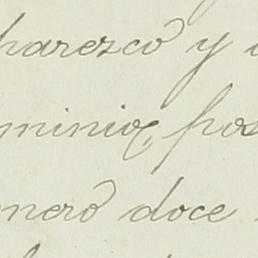 parezco y
minio, pos
mero doce